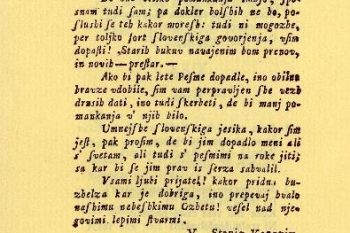 snam tudi sam; pa dokler bolshih ne bo, po-
slushi se teh kakor moresh: tudi ni mogozhe,
per toljko sort slovenskiga govorjenja, vsim
dopasti! „Starih bukuv navajenim bom prenov,
in novih — prestar. —
Ako bi pak lete Pesme dopadle, ino obilno
bravze vdobile, sim vam perpravljen she vezh
drusih dati, ino tudi skerbeti, de bi manj po-
mankanja v' njih bilo.
Umnejshe slovenskiga jesika, kakor sim
jest, pak prosim, de bi jim dopadlo meni ali
s' svetam, ali tudi s' pesmimi na roke jiti;
sa kar bi se jim prav is serza sahvalil.
Vsami ljubi prijatel! kakor pridna bu-
zhelza kar je dobriga, ino prepevaj hvalo
nashimu nebeshkimu Ozhetu! vesel nad nje-
govimi lepimi stvarmi.